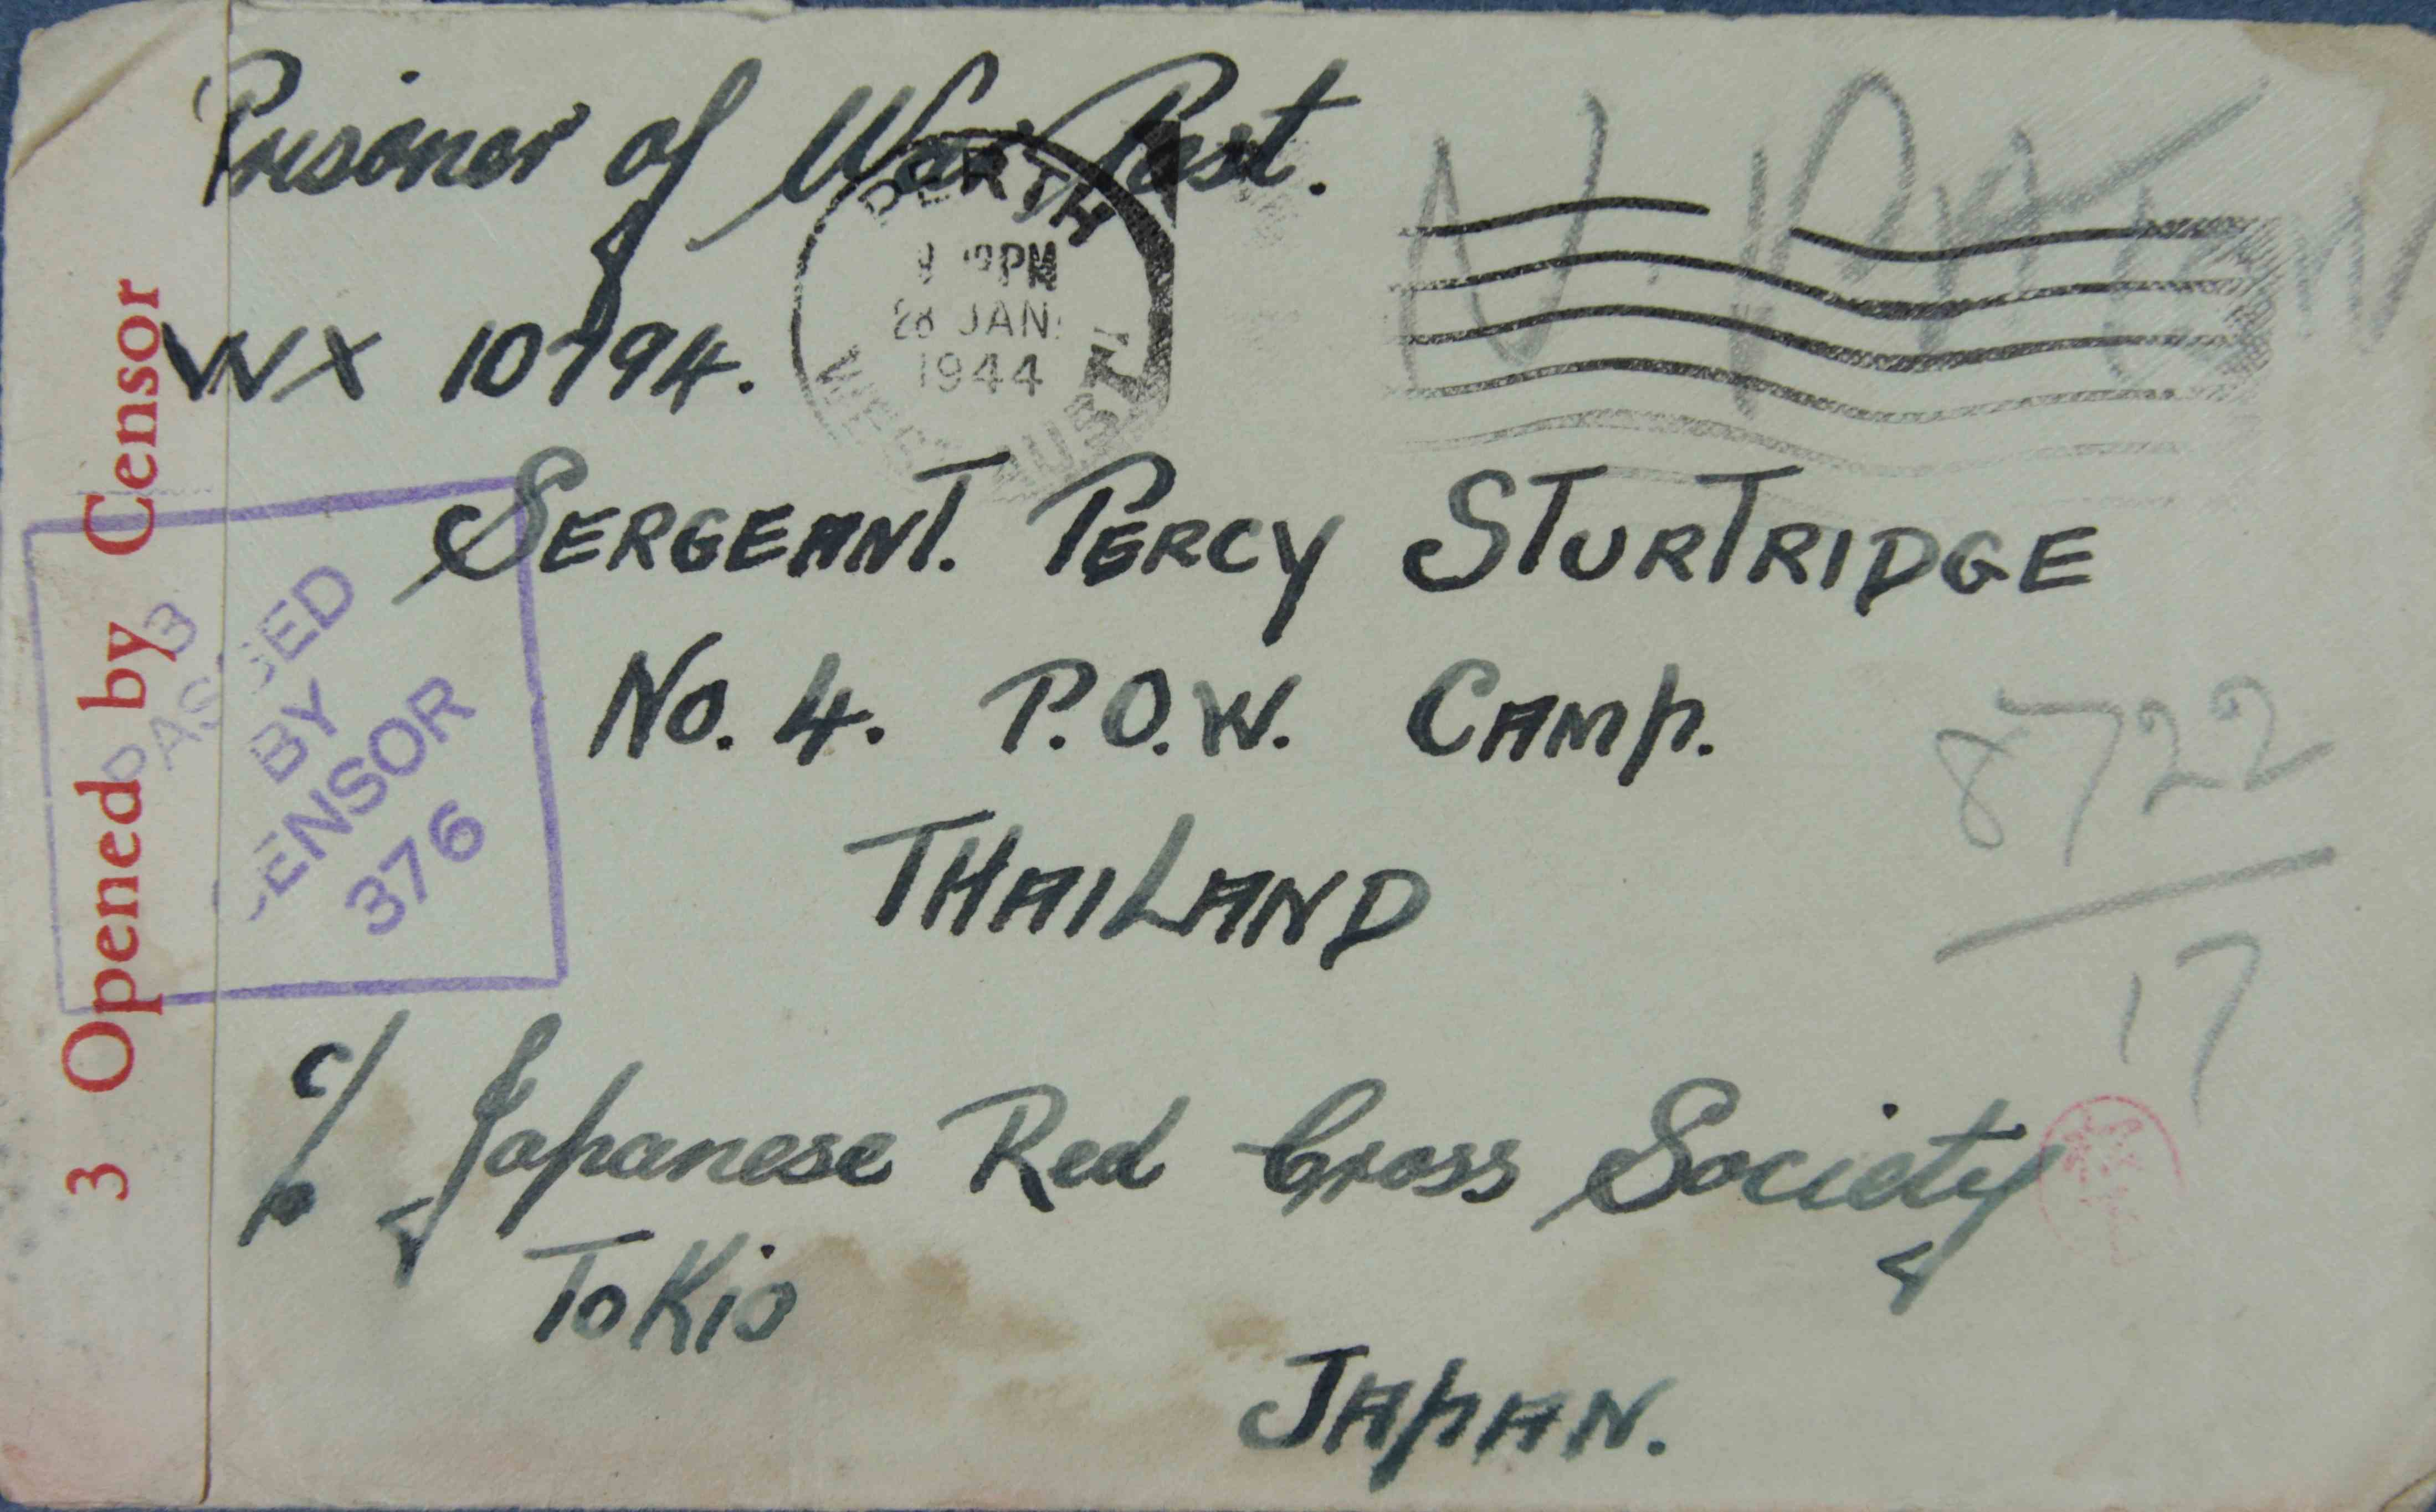 Prisoner of War Post.
PERTH
PM
28 JAN
1944
WEST AUST.
WX 10794.
SERGEANT. PERCY STURTRIDGE
No. 4. P.O.W. CAMP.
THAILAND
c/o Japanese Red Cross Society
ToKio
JAPAN.
3 Opened by Censor
3
PASSED
BY
CENSOR
376
8722
17